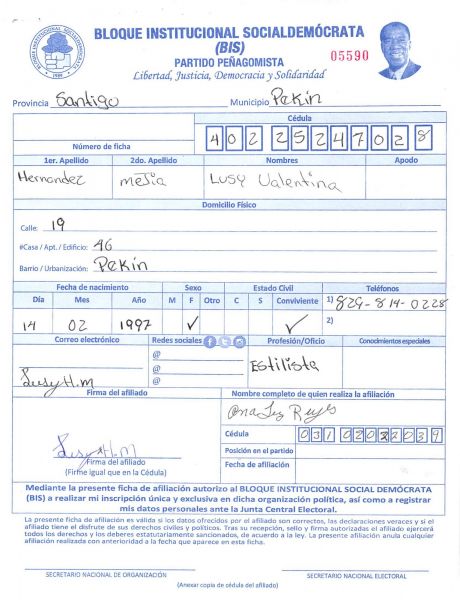 BLOQUE INSTITUCIONAL SOCIALDEMÓCRATA
(BIS)
PARTIDO PEÑAGOMISTA
Libertad, Justicia, Democracia y Solidaridad
05590
Provincia Santigo Municipio Pekín
Cédula
Número de ficha 402 2524702 8
1er. Apellido 2do. Apellido Nombres Apodo
Hernandez mejia Lusy Valentina
Domicilio Físico
Calle: 19
#Casa / Apt. / Edificio: 46
Barrio / Urbanización: Pekín
Fecha de nacimiento Sexo Estado Civil Teléfonos
Día Mes Año M F Otro C S Conviviente 1) 829-814-0228
14 02 1997 ✓ ✓ 2)
Correo electrónico Redes sociales Profesión/Oficio Conocimientos especiales
@ Estilista
@
Lusy H.M @
Firma del afiliado Nombre completo de quien realiza la afiliación
Ana Luz Reyes
Cédula 031 02022039
Lusy H.M Posición en el partido
Firma del afiliado Fecha de afiliación
(Firme igual que en la Cédula)
Mediante la presente ficha de afiliación autorizo al BLOQUE INSTITUCIONAL SOCIAL DEMÓCRATA
(BIS) a realizar mi inscripción única y exclusiva en dicha organización política, así como a registrar
mis datos personales ante la Junta Central Electoral.
La presente ficha de afiliación es válida si los datos ofrecidos por el afiliado son correctos, las declaraciones veraces y si el
afiliado tiene el disfrute de sus derechos civiles y políticos. Tras su recepción, sello y firma autorizadas el afiliado ejercerá
todos los derechos y los deberes estatutariamente sancionados, de acuerdo a la ley. La presente afiliación anula cualquier
afiliación realizada con anterioridad a la fecha que aparece en esta ficha.
SECRETARIO NACIONAL DE ORGANIZACIÓN SECRETARIO NACIONAL ELECTORAL
(Anexar copia de cédula del afiliado)